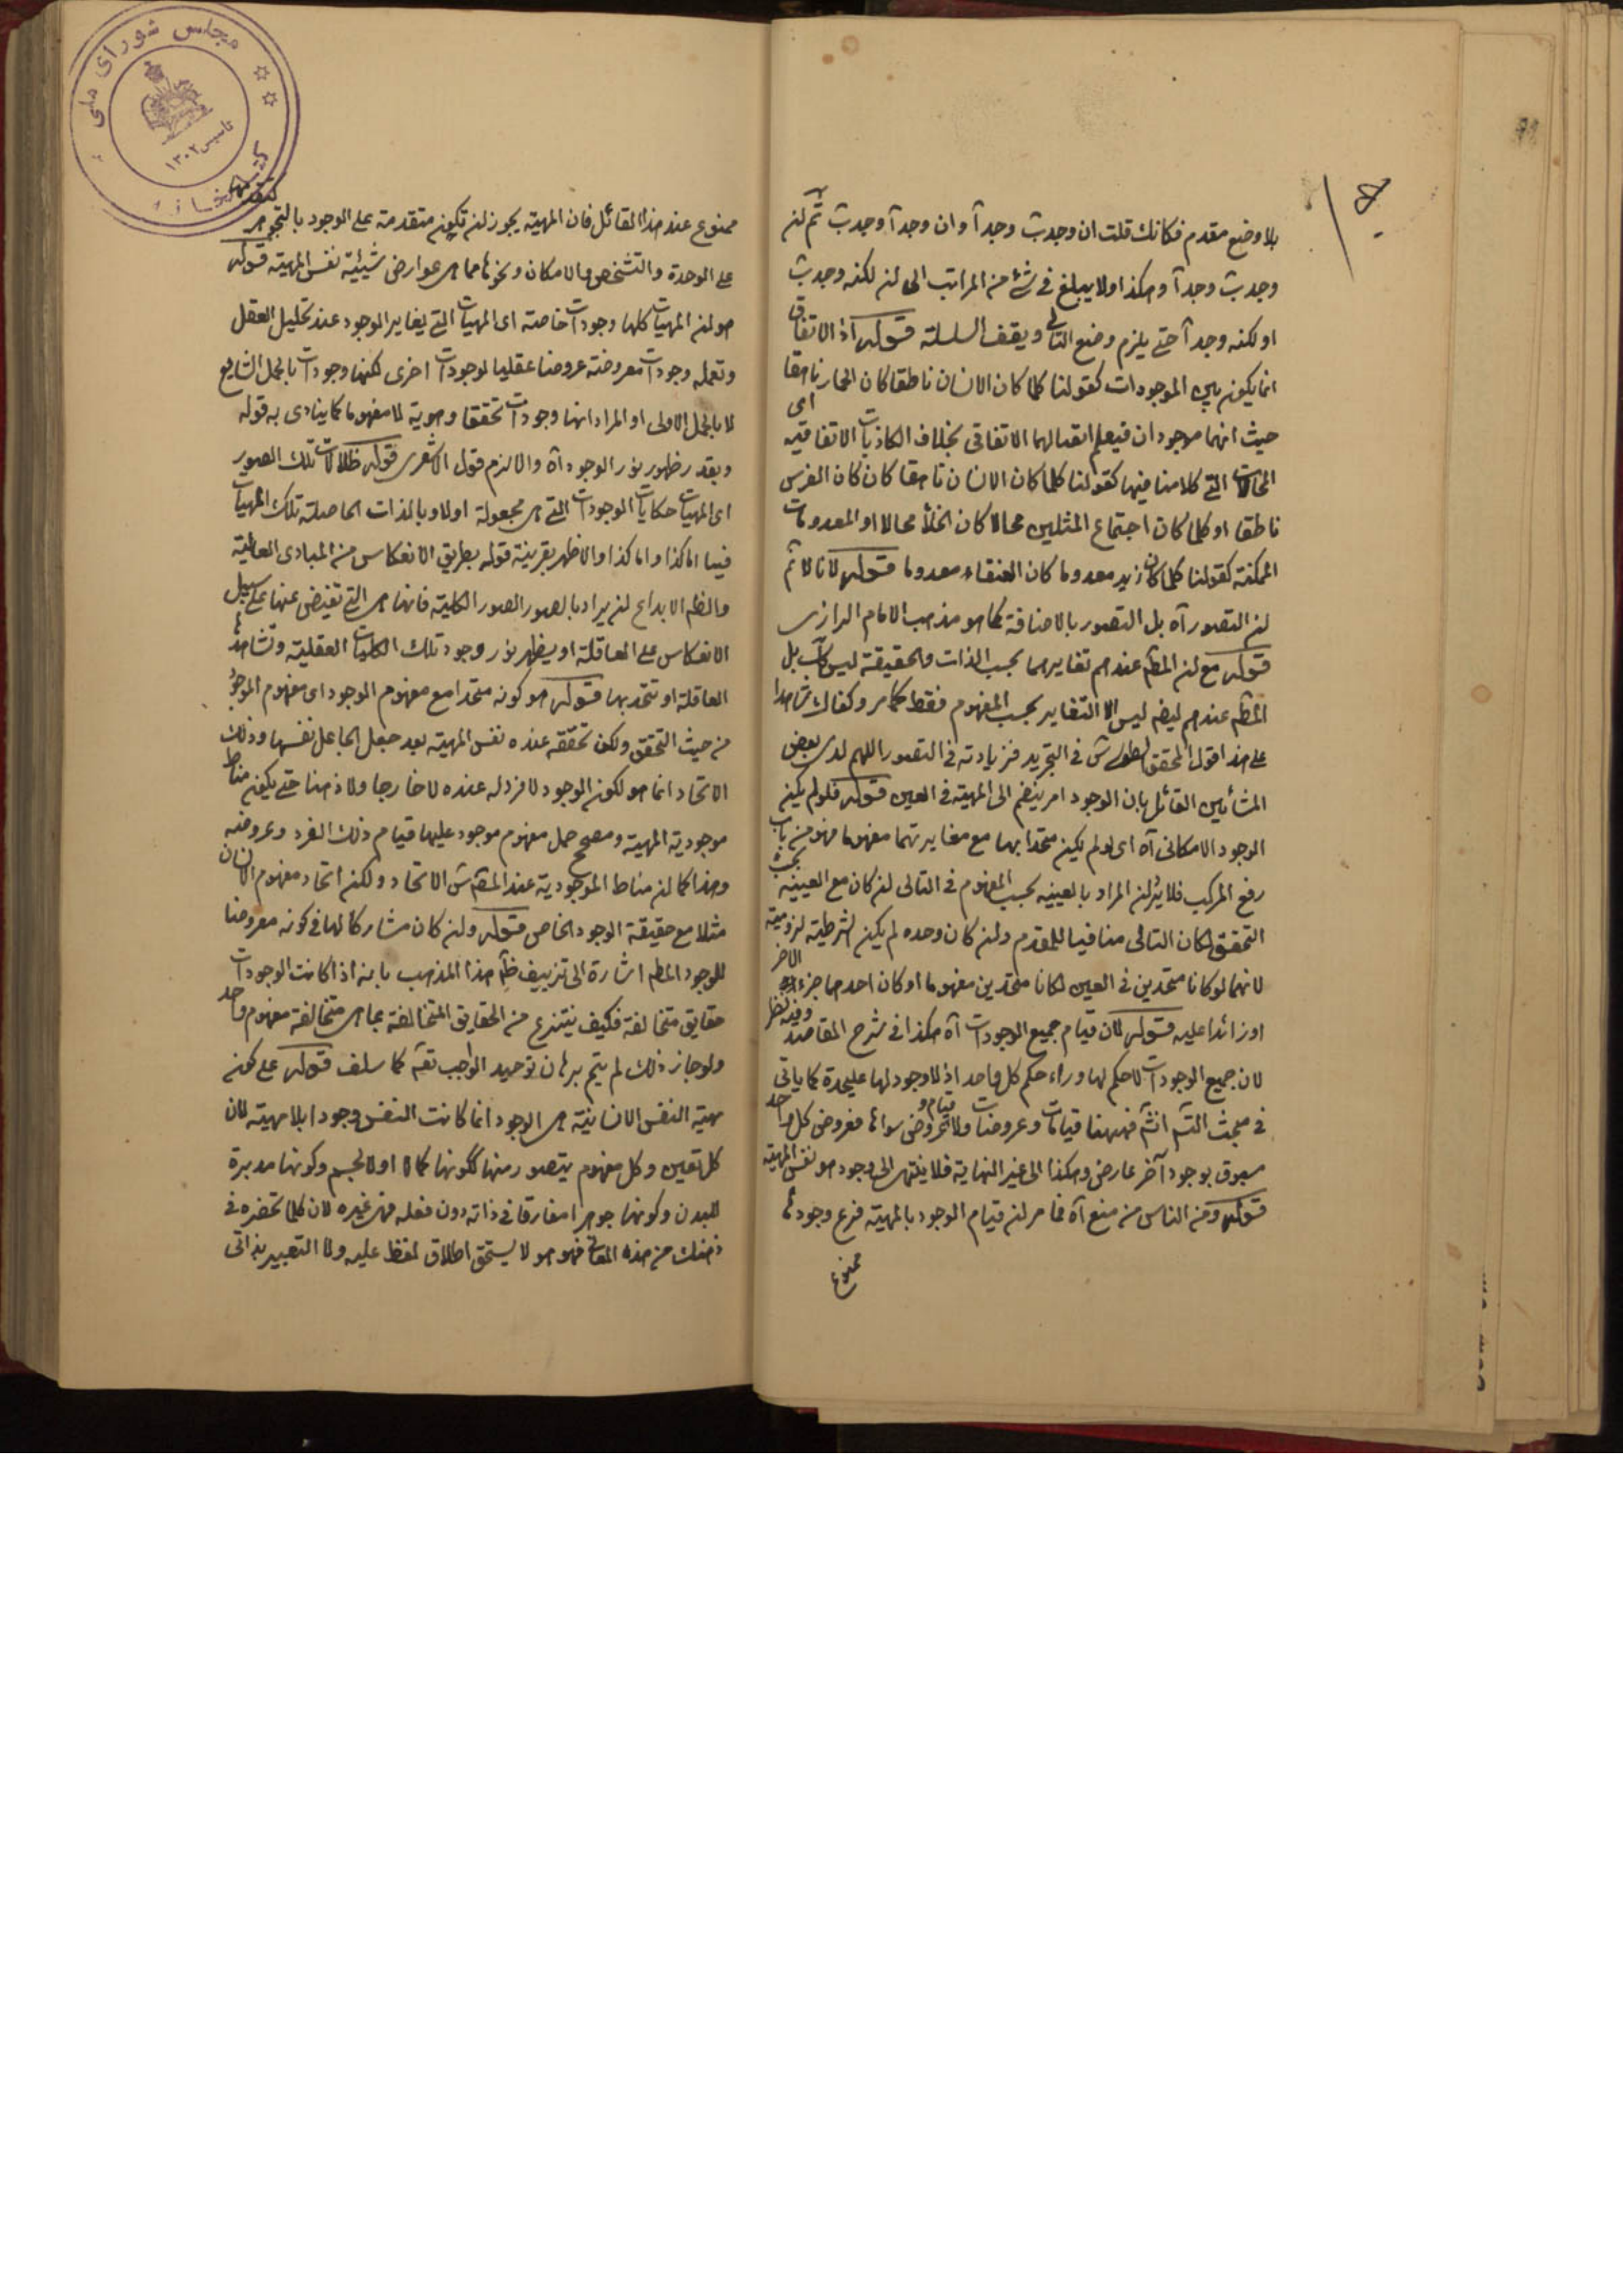 بلا وضع مقدم فكانك قلت ان وجدت وجد آ وان وجد آ وجدت ثم لن
وجدت وجد آ وهكذا ولا يبلغ في شئ من المراتب الى لن لكنه وجدت
او لكنه وجد آ حتى يلزم وضع التالى ويقف السلسلة قوله اذ الاتفاق
انما يكون بين الموجودات كقولنا كلما كان الانسان ناطقا كان الحمار ناهقا
حيث انهما موجودان فيعلم اتصالهما الاتفاقى بخلاف الكاذبات الاتفاقية اى
المحالات التى كلامنا فيها كقولنا كلما كان الانسان ناهقا كان كان الفرس
ناطقا او كلما كان اجتماع المثلين محالا كان الخلأ محالا او المعدومات
الممكنة كقولنا كلما كان زيد معدوما كان العنقاء معدوما قوله لانا لا ثم
لن التصور آه بل التصور بالاضافة كما هو مذهب الامام الرازى
قوله مع لن المظم عندهم تغايرهما بحسب الذات والحقيقة ليس كآ بل
المظم عندهم ليضم ليس الا التغاير بحسب المفهوم فقط كما مر وكفاك شاهدا
على هذا قول المحقق الطوسى ش فى التجريد فزيادته فى التصور اللهم لدى بعض
المشائين القائل بان الوجود امر ينضم الى المهية فى العين قوله فلو لم يكن
الوجود الامكانى آه اى لو لم يكن متحدا بها مع مغايرتهما مفهوما فهو من باب
رفع المركب فلا يرلن المراد بالعينيه بحسب المفهوم فى التالى لن كان مع العينيه بحسب
التحقق لكان التالى منافيا للمقدم ولن كان وحده لم يكن الشرطية لزومية
لانهما لو كانا متحدين فى العين لكانا متحدين مفهوما او كان احدهما جزء الاخر
او زائدا عليه قوله لان قيام جميع الوجودات آه هكذا فى شرح المقاصد وفيه نظر
لان جميع الوجودات لا حكم لها وراء حكم كل واحد اذ لا وجود لها عليحدة كما ياتى
فى مبحث التم انشم فههنا قيامات وعروضات ولا قيام و عروض سواها فعروض كل واحد
مسبوق بوجود آخر عارض وهكذا الى غير النهاية فلا ينتهى الى وجود هو نفس المهية
قوله ومن الناس من منع آه فما مر لن قيام الوجود بالمهية فرع وجودها
ممنوع
ممنوع عند هذا القائل فان المهية يجوز لن تكون متقدمة على الوجود بالتجوهر كتقدمها
على الوحدة والتشخص والامكان ونحوها مما هى عوارض شيئية نفس المهية قوله
هو لن المهيات كلها وجودات خاصة اى المهيات التى يغاير الوجود عند تحليل العقل
وتعمله وجودات معروضة عروضا عقليا لوجودات اخرى لكنها وجودات بالحمل الشايع
لا بالحمل الاولى او المراد انها وجودات تحققا وهوية لا مفهوما كما ينادى به قوله
وبقدر ظهور نور الوجود آه والا لزم قول الاشعرى قوله ظلالات تلك الصور
اى المهيات حكايات الموجودات التى هى مجعولة اولا وبالذات الحاصلة تلك المهيات
فيها اما كذا واما كذا والاظهر بقرينة قوله بطريق الانعكاس من المبادى العالية
والظم الابداع لن يراد بالصور الصور الكلية فانها هى التى تفيض عنها على سبيل
الانعكاس على العاقلة او يظهر نور وجود تلك الكليات العقلية وتشاهدها
العاقلة او تتحد بها قوله هو كونه متحدا مع مفهوم الموجود اى مفهوم الموجود
من حيث التحقق ولكن تحققه عنده نفس المهية بعد جعل الجاعل نفسها وذلك
الاتحاد انما هو لكون الموجود لا فرد له عنده لا خارجا ولا ذهنا حتى يكون مناط
موجودية المهية ومصحح حمل مفهوم موجود عليها قيام ذلك الفرد وعروضه
وهذا كما لن مناط الموجودية عند المقم ش الاتحاد ولكن اتحاد مفهوم الانسان
مثلا مع حقيقة الوجود الخاص قوله ولن كان مشاركا لها فى كونه معروضا
للوجود المطم اشارة الى تزييف ظم هذا المذهب بانه اذا كانت الوجودات
حقايق متخالفة فكيف ينتزع من الحقايق المتخالفة بما هى متخالفة مفهوم واحد
ولو جاز ذلك لم يتم برهان توحيد الواجب تعم كما سلف قوله على كون
مهية النفس الانسانية هى الوجود انما كانت النفس وجودا بلا مهية لان
كل تعين وكل مفهوم يتصور منها ككونها كمالا اولا لجسم وكونها مدبرة
للبدن وكونها جوهرا مفارقا فى ذاته دون فعله فهى غيره لان كلما تحضره فى
ذهنك من هذه المعانى فهو هو لا يستحق اطلاق لفظ عليه ولا التعبير بذاتى
مجلس شورای ملی
کتابخانه
تاسیس ١٣٠٢